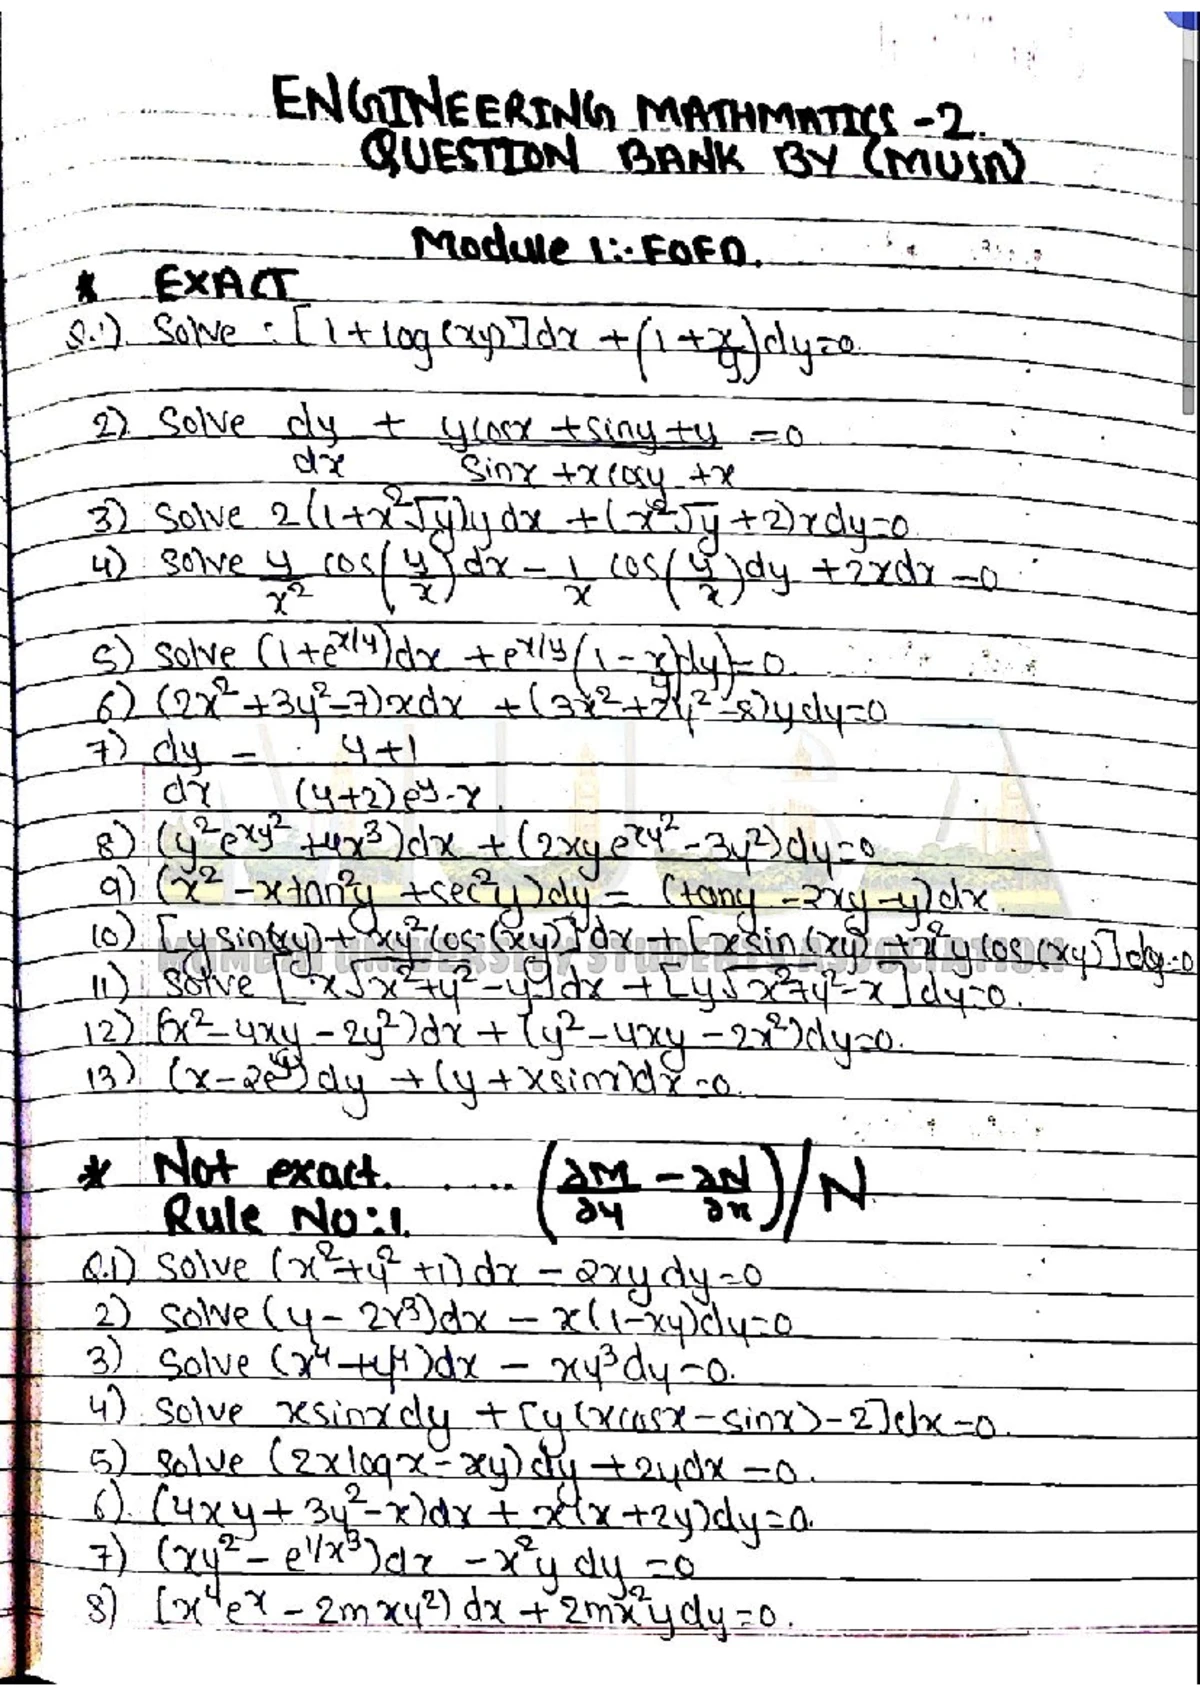 ENGINEERING MATHMATICS -2.
QUESTION BANK BY (MUSA)
Module 1:- FOFD.
* EXACT
Q.1). Solve : [1+log(xy)]dx + (1+x/y)dy=0.
2). Solve dy/dx + (ycosx + siny + y)/(sinx + xcosy + x) = 0
3) Solve 2(1+x²√y)ydx + (x²√y+2)xdy=0
4) Solve y/x² cos(y/x)dx - 1/x cos(y/x)dy + 2xdx = 0
5) Solve (1+e^(x/y))dx + e^(x/y)(1-x/y)dy=0.
6) (2x²+3y²-7)xdx + (3x²+2y²-8)ydy=0
7) dy/dx = (y+1)/((y+2)e^y-x).
8) (y²e^(xy²)+4x³)dx + (2xye^(xy²)-3y²)dy=0
9) (x²-xtan²y+sec²y)dy = (tany-2xy-y)dx.
10) [ysin(xy)+xy²cos(xy)]dx + [xsin(xy)+x²ycos(xy)]dy=0
MUMBAI UNIVERSITY STUDENTS ASSOCIATION
11) Solve [x√(x²+y²)-y]dx + [y√(x²+y²)-x]dy=0.
12) (x²-4xy-2y²)dx + (y²-4xy-2x²)dy=0.
13) (x-2e^y)dy + (y+xsinx)dx=0.
* Not exact. ..... (∂M/∂y - ∂N/∂x)/N
Rule No:1.
Q.1) Solve (x²+y²+1)dx - 2xydy=0
2) Solve (y-2x³)dx - x(1-xy)dy=0
3) Solve (x⁴+y⁴)dx - xy³dy=0.
4) Solve xsinxdy + [y(xcosx-sinx)-2]dx=0.
5) Solve (2xlogx-xy)dy + 2ydx=0.
6). (4xy+3y²-x)dx + x(x+2y)dy=0.
7) (xy²-e^(1/x³))dx - x²ydy=0
8) [x⁴e^x-2mxy²)dx + 2mx²ydy=0.